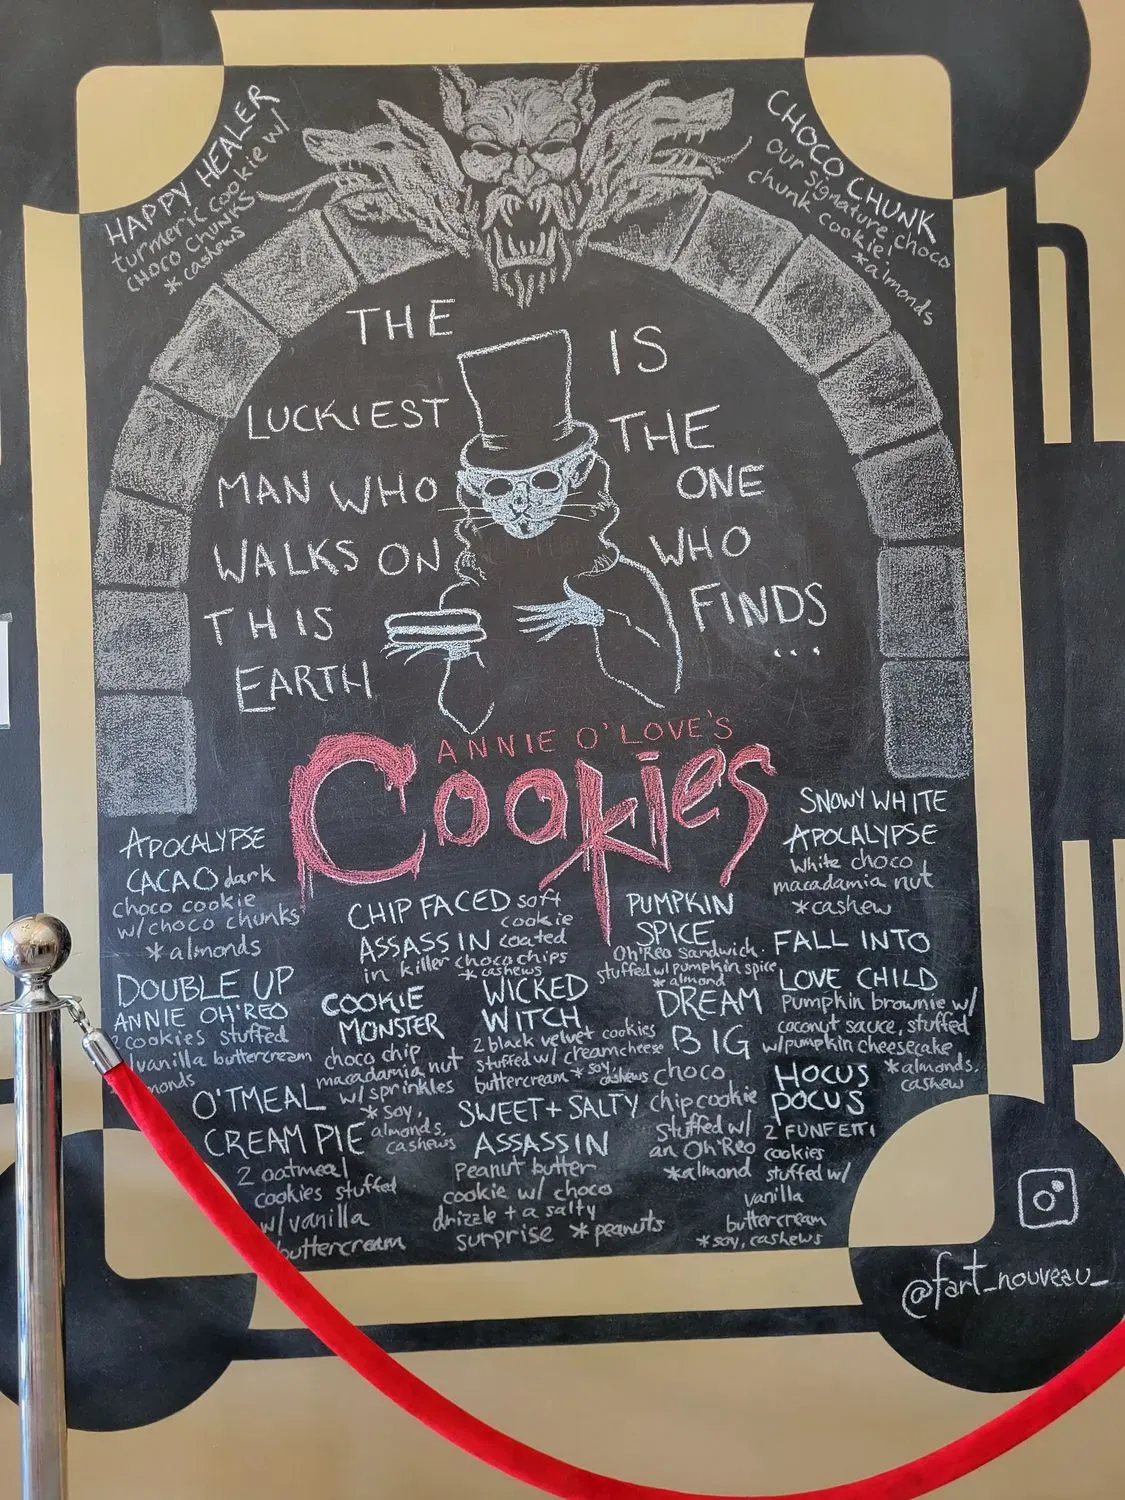 HAPPY HEALER
turmeric cookie w/
choco chunks
*cashews
CHOCO CHUNK
our signature choco
chunk cookie!
*almonds
THE
LUCKIEST
MAN WHO
WALKS ON
THIS
EARTH
IS
THE
ONE
WHO
FINDS
...
ANNIE O'LOVE'S
Cookies
APOCALYPSE
CACAO dark
choco cookie
w/choco chunks
*almonds
DOUBLE UP
ANNIE OH'REO
2 cookies stuffed
vanilla buttercream
monds
O'TMEAL
CREAM PIE
2 oatmeal
cookies stuffed
w/vanilla
buttercream
CHIP FACED soft
cookie
ASSASSIN coated
in killer choco chips
*cashews
COOKIE
MONSTER
choco chip
macadamia nut
w/sprinkles
*soy,
almonds,
cashews
WICKED
WITCH
2 black velvet cookies
stuffed w/ creamcheese
buttercream *soy,
cashews
SWEET + SALTY
ASSASSIN
Peanut butter
cookie w/ choco
drizzle + a salty
surprise *peanuts
PUMPKIN
SPICE
Oh'Reo Sandwich
stuffed w/ pumpkin spice
*almond
DREAM
BIG
choco
chip cookie
stuffed w/
an Oh'Reo
*almond
SNOWY WHITE
APOCALYPSE
white choco
macadamia nut
*cashew
FALL INTO
LOVE CHILD
Pumpkin brownie w/
coconut sauce, stuffed
w/pumpkin cheesecake
*almonds,
cashew
HOCUS
POCUS
2 FUNFETTI
cookies
stuffed w/
vanilla
buttercream
*soy, cashews
@fart_nouveau_